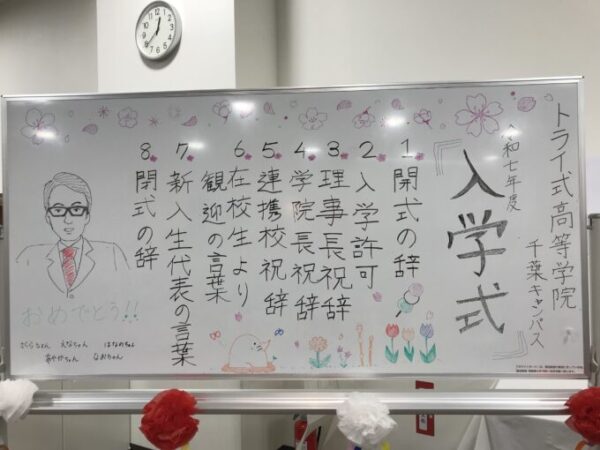 トライ式高等学院
千葉キャンパス
令和七年度
『入学式』
1.開式の辞
2.入学許可
3.理事長祝辞
4.学院長祝辞
5.連携校祝辞
6.在校生より
歓迎の言葉
7.新入生代表の言葉
8.閉式の辞
おめでとう!!
さくらちゃん えなちゃん はなのちゃん
あやかちゃん なおちゃん